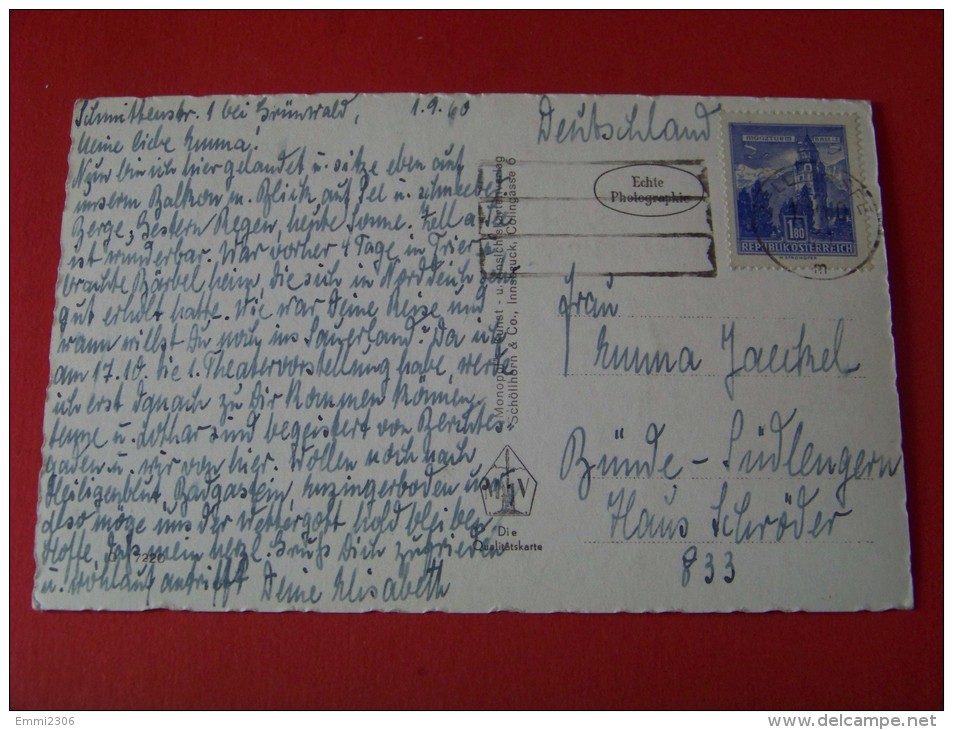 Schmittenstr. 1 bei Grünwald, 1.9.60
Meine liebe Emma!
Nun bin ich hier gelandet u. sitze eben auf
unserm Balkon m. Blick auf See u. schnee
Berge, gestern Regen, heute Sonne. Zell a. See
ist wunderbar. War vorher 4 Tage in Trier
brachte Bärbel heim, die sich in Norddeich sehr
gut erholt hatte. Wie war Deine Reise und
wann willst Du noch ins Sauerland? Da ich
am 17.10. die 1. Theatervorstellung habe, werde
ich erst danach zu Dir kommen können.
u. Lothar sind begeistert von Berchtes-
gaden u. wir von hier. Wollen noch nach
Heiligenblut, Badgastein, Enzingerboden usw
also möge uns der Wettergott hold bleiben
Hoffe, daß mein herzl. Gruß Dich zufrieden
u. wohlauf antrifft Deine Elisabeth
7220
Monopol Kunst- u. Ansichtskartenverlag
Schöllhorn & Co., Innsbruck, Colingasse 6
Die
Qualitätskarte
Deutschland
Echte
Photographie
MÜNZTURM HALL I. T.
1.80
REPUBLIK ÖSTERREICH
Frau
Emma Jaeckel
Bünde-Südlengern
Haus Schröder
833
Emmi2306
www.delcampe.net